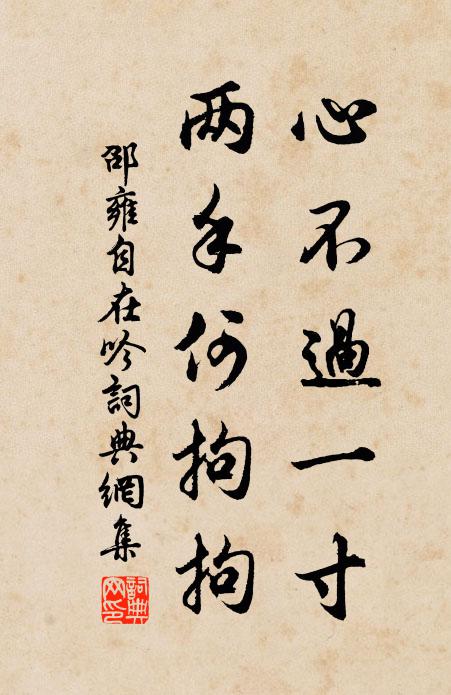 心不過一寸
两手何拘拘
邵雍自在吟詞典網集
詞典网印